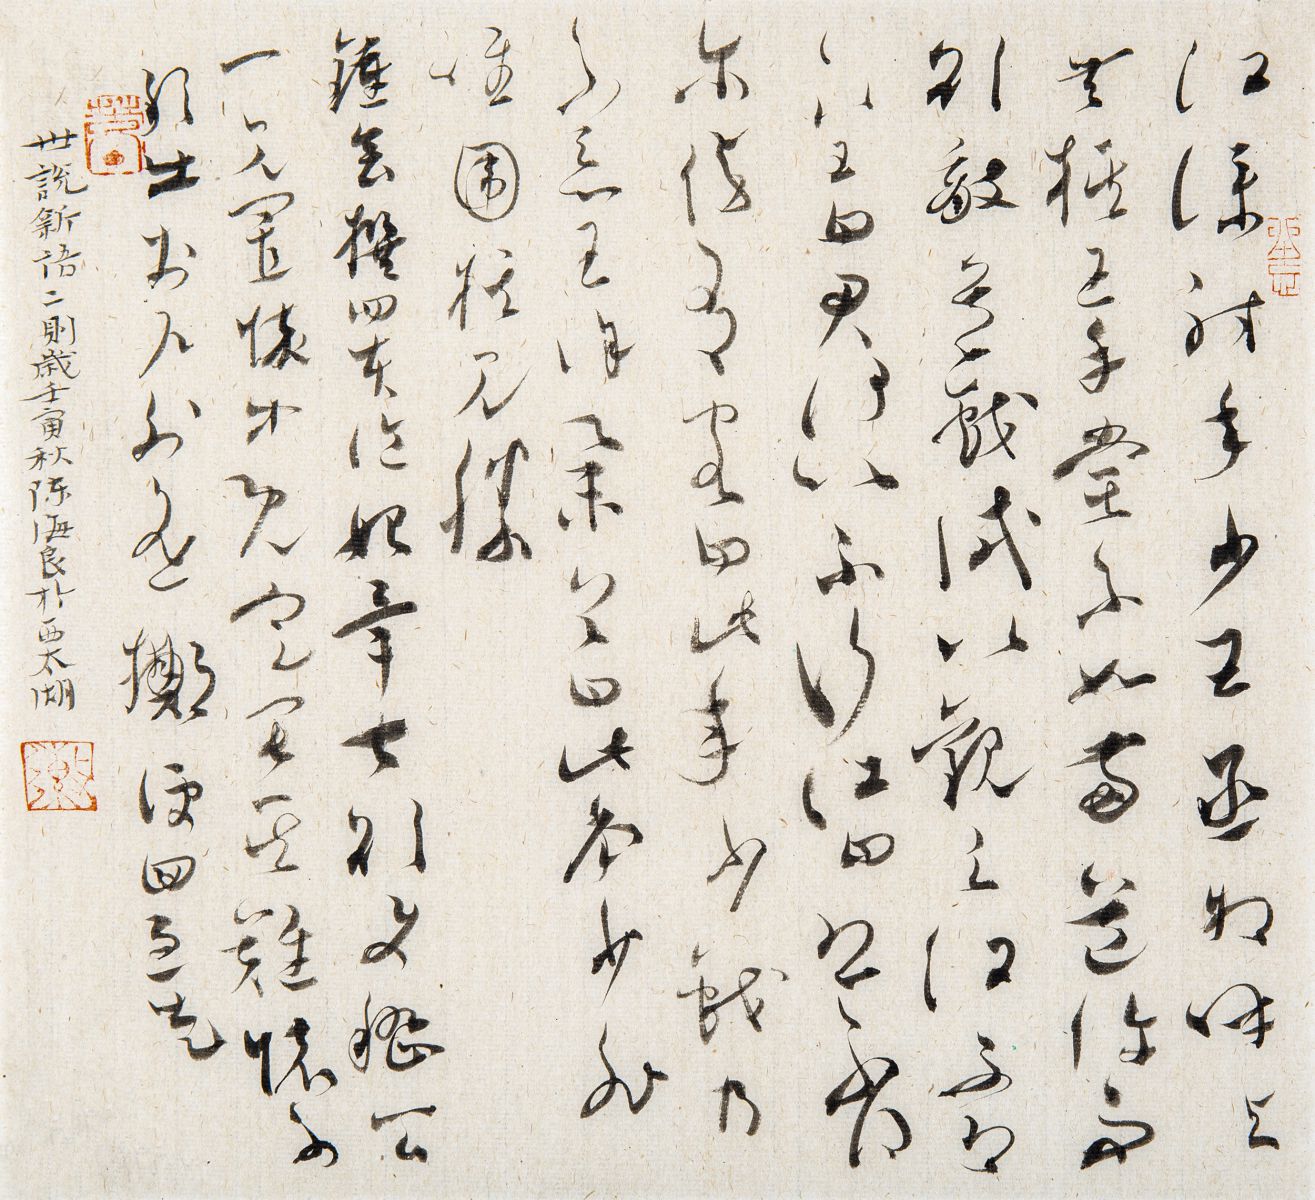 江僕射年少王丞相呼與
共棋王手嘗不如兩道許而
欲敵道戲試以觀之江不即
下王曰君何以不行江曰恐不得
爾傍有客曰此年少戲乃
不惡王徐舉首曰此年少非
唯圍棋見勝
鍾會撰四本論始畢甚欲使嵇公
一見置懷中既定畏其難懷不
敢出於戶外遙擲便回急走
世說新語二則歲壬寅秋陈海良於西太湖